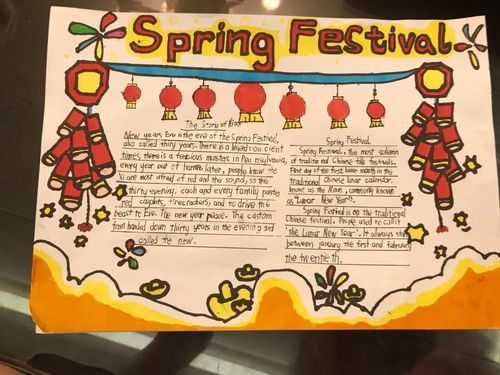 Spring Festival
The Story of Nian
New years Eve is the eve of the Spring Festival,
also called thirty years. There is a legend: an cient
times there is a ferocious monsters in
every year out of harmful later, people know the
most afraid of red and the sound, so the
thirty evening, each and every family paste
red couplets, firecrackers, and to drive the
beast to Eve. The new year peace. The custom
from handed down thirty years in the evening and
called the new.
Spring Festival
Spring Festival, the most column
of traditional Chinese folk festivals.
First day of the first lunar month in the
traditional Chinese lunar calendar,
know as the Moon, commonly known
as "Lunar New Year".
Spring Festival is on the traditional
Chinese festival. People used to call it
"the Lunar New Year". It always
between january the first and february
the twentieth.